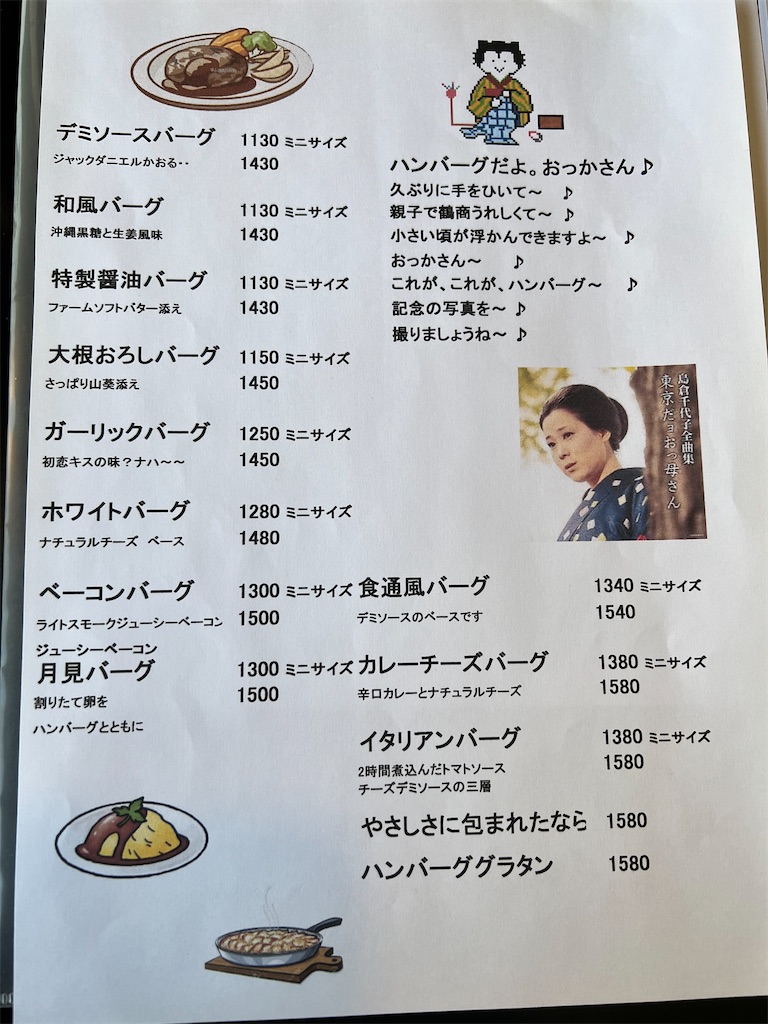 デミソースバーグ 1130 ミニサイズ
ジャックダニエルかおる‥ 1430
和風バーグ 1130 ミニサイズ
沖縄黒糖と生姜風味 1430
特製醤油バーグ 1130 ミニサイズ
ファームソフトバター添え 1430
大根おろしバーグ 1150 ミニサイズ
さっぱり山葵添え 1450
ガーリックバーグ 1250 ミニサイズ
初恋キスの味？ナハ～～ 1450
ホワイトバーグ 1280 ミニサイズ
ナチュラルチーズ ベース 1480
ベーコンバーグ 1300 ミニサイズ
ライトスモークジューシーベーコン 1500
ジューシーベーコン
月見バーグ 1300 ミニサイズ
割りたて卵を 1500
ハンバーグとともに
ハンバーグだよ。おっかさん♪
久ぶりに手をひいて～ ♪
親子で鶴商うれしくて～ ♪
小さい頃が浮かんできますよ～ ♪
おっかさん～ ♪
これが、これが、ハンバーグ～ ♪
記念の写真を～ ♪
撮りましょうね～ ♪
島倉千代子全曲集
東京だョおっ母さん
食通風バーグ 1340 ミニサイズ
デミソースのベースです 1540
カレーチーズバーグ 1380 ミニサイズ
辛口カレーとナチュラルチーズ 1580
イタリアンバーグ 1380 ミニサイズ
2時間煮込んだトマトソース 1580
チーズデミソースの三層
やさしさに包まれたなら 1580
ハンバーググラタン 1580